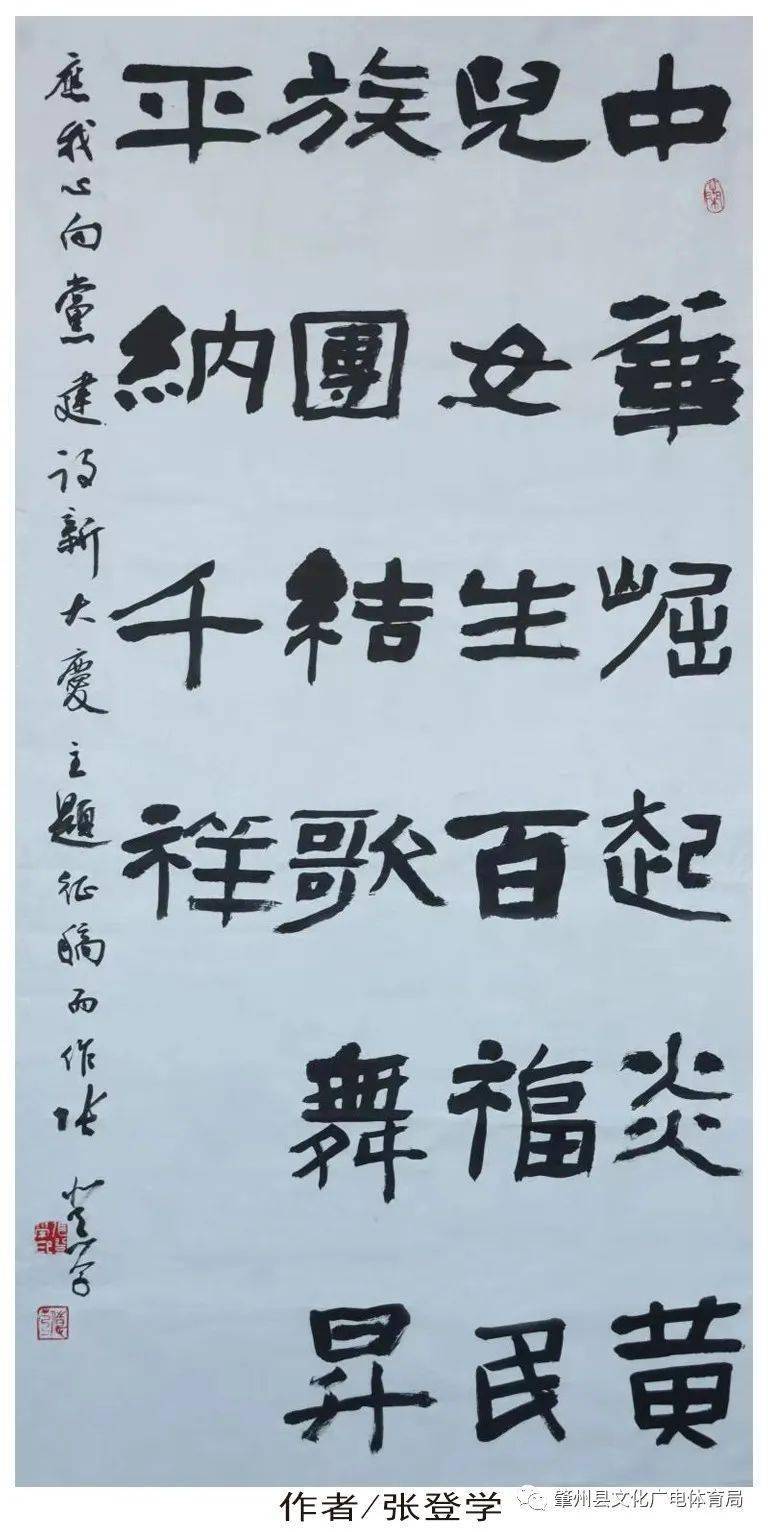 中華崛起炎黄
兒女生百福民
族團結歌舞昇
平納千祥
應我心向黨建设新大慶主題征稿而作张登学
作者/张登学
肇州县文化广电体育局